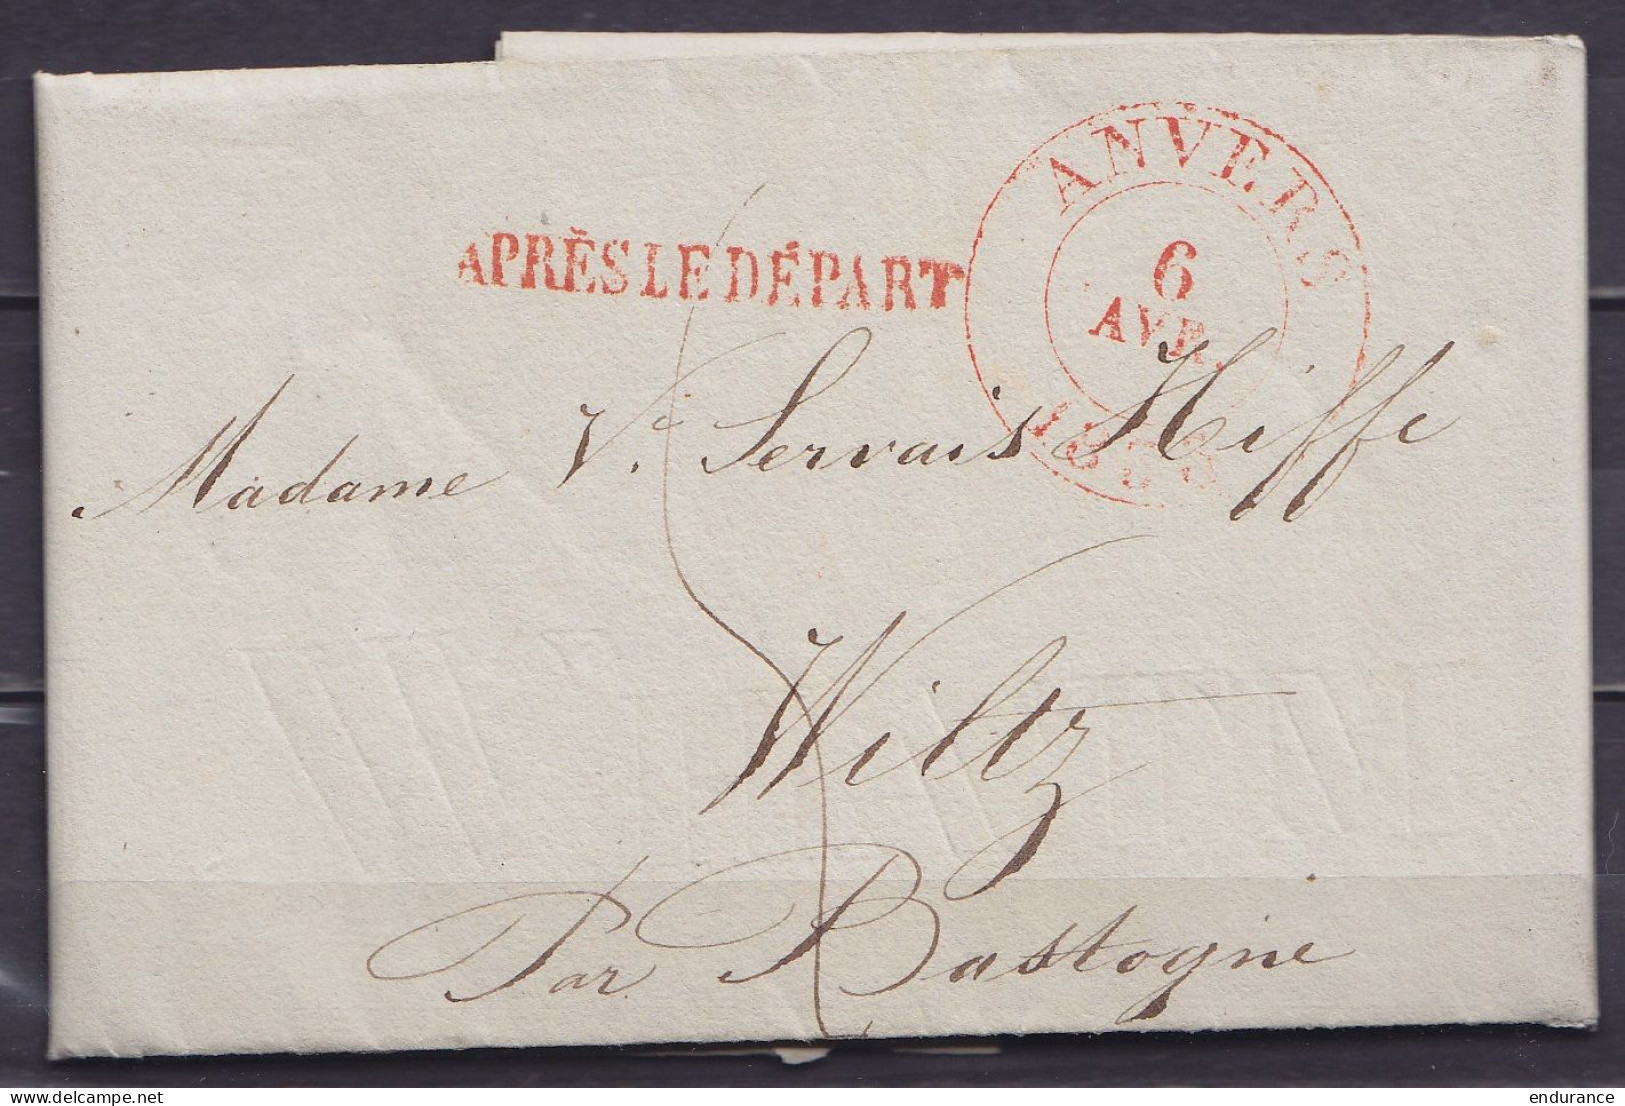 ANVERS
6
AVR.
APRÈS LE DÉPART
Madame Ve Servais Hiffe
Wiltz
Par Bastogne
delcampe.net
endurance